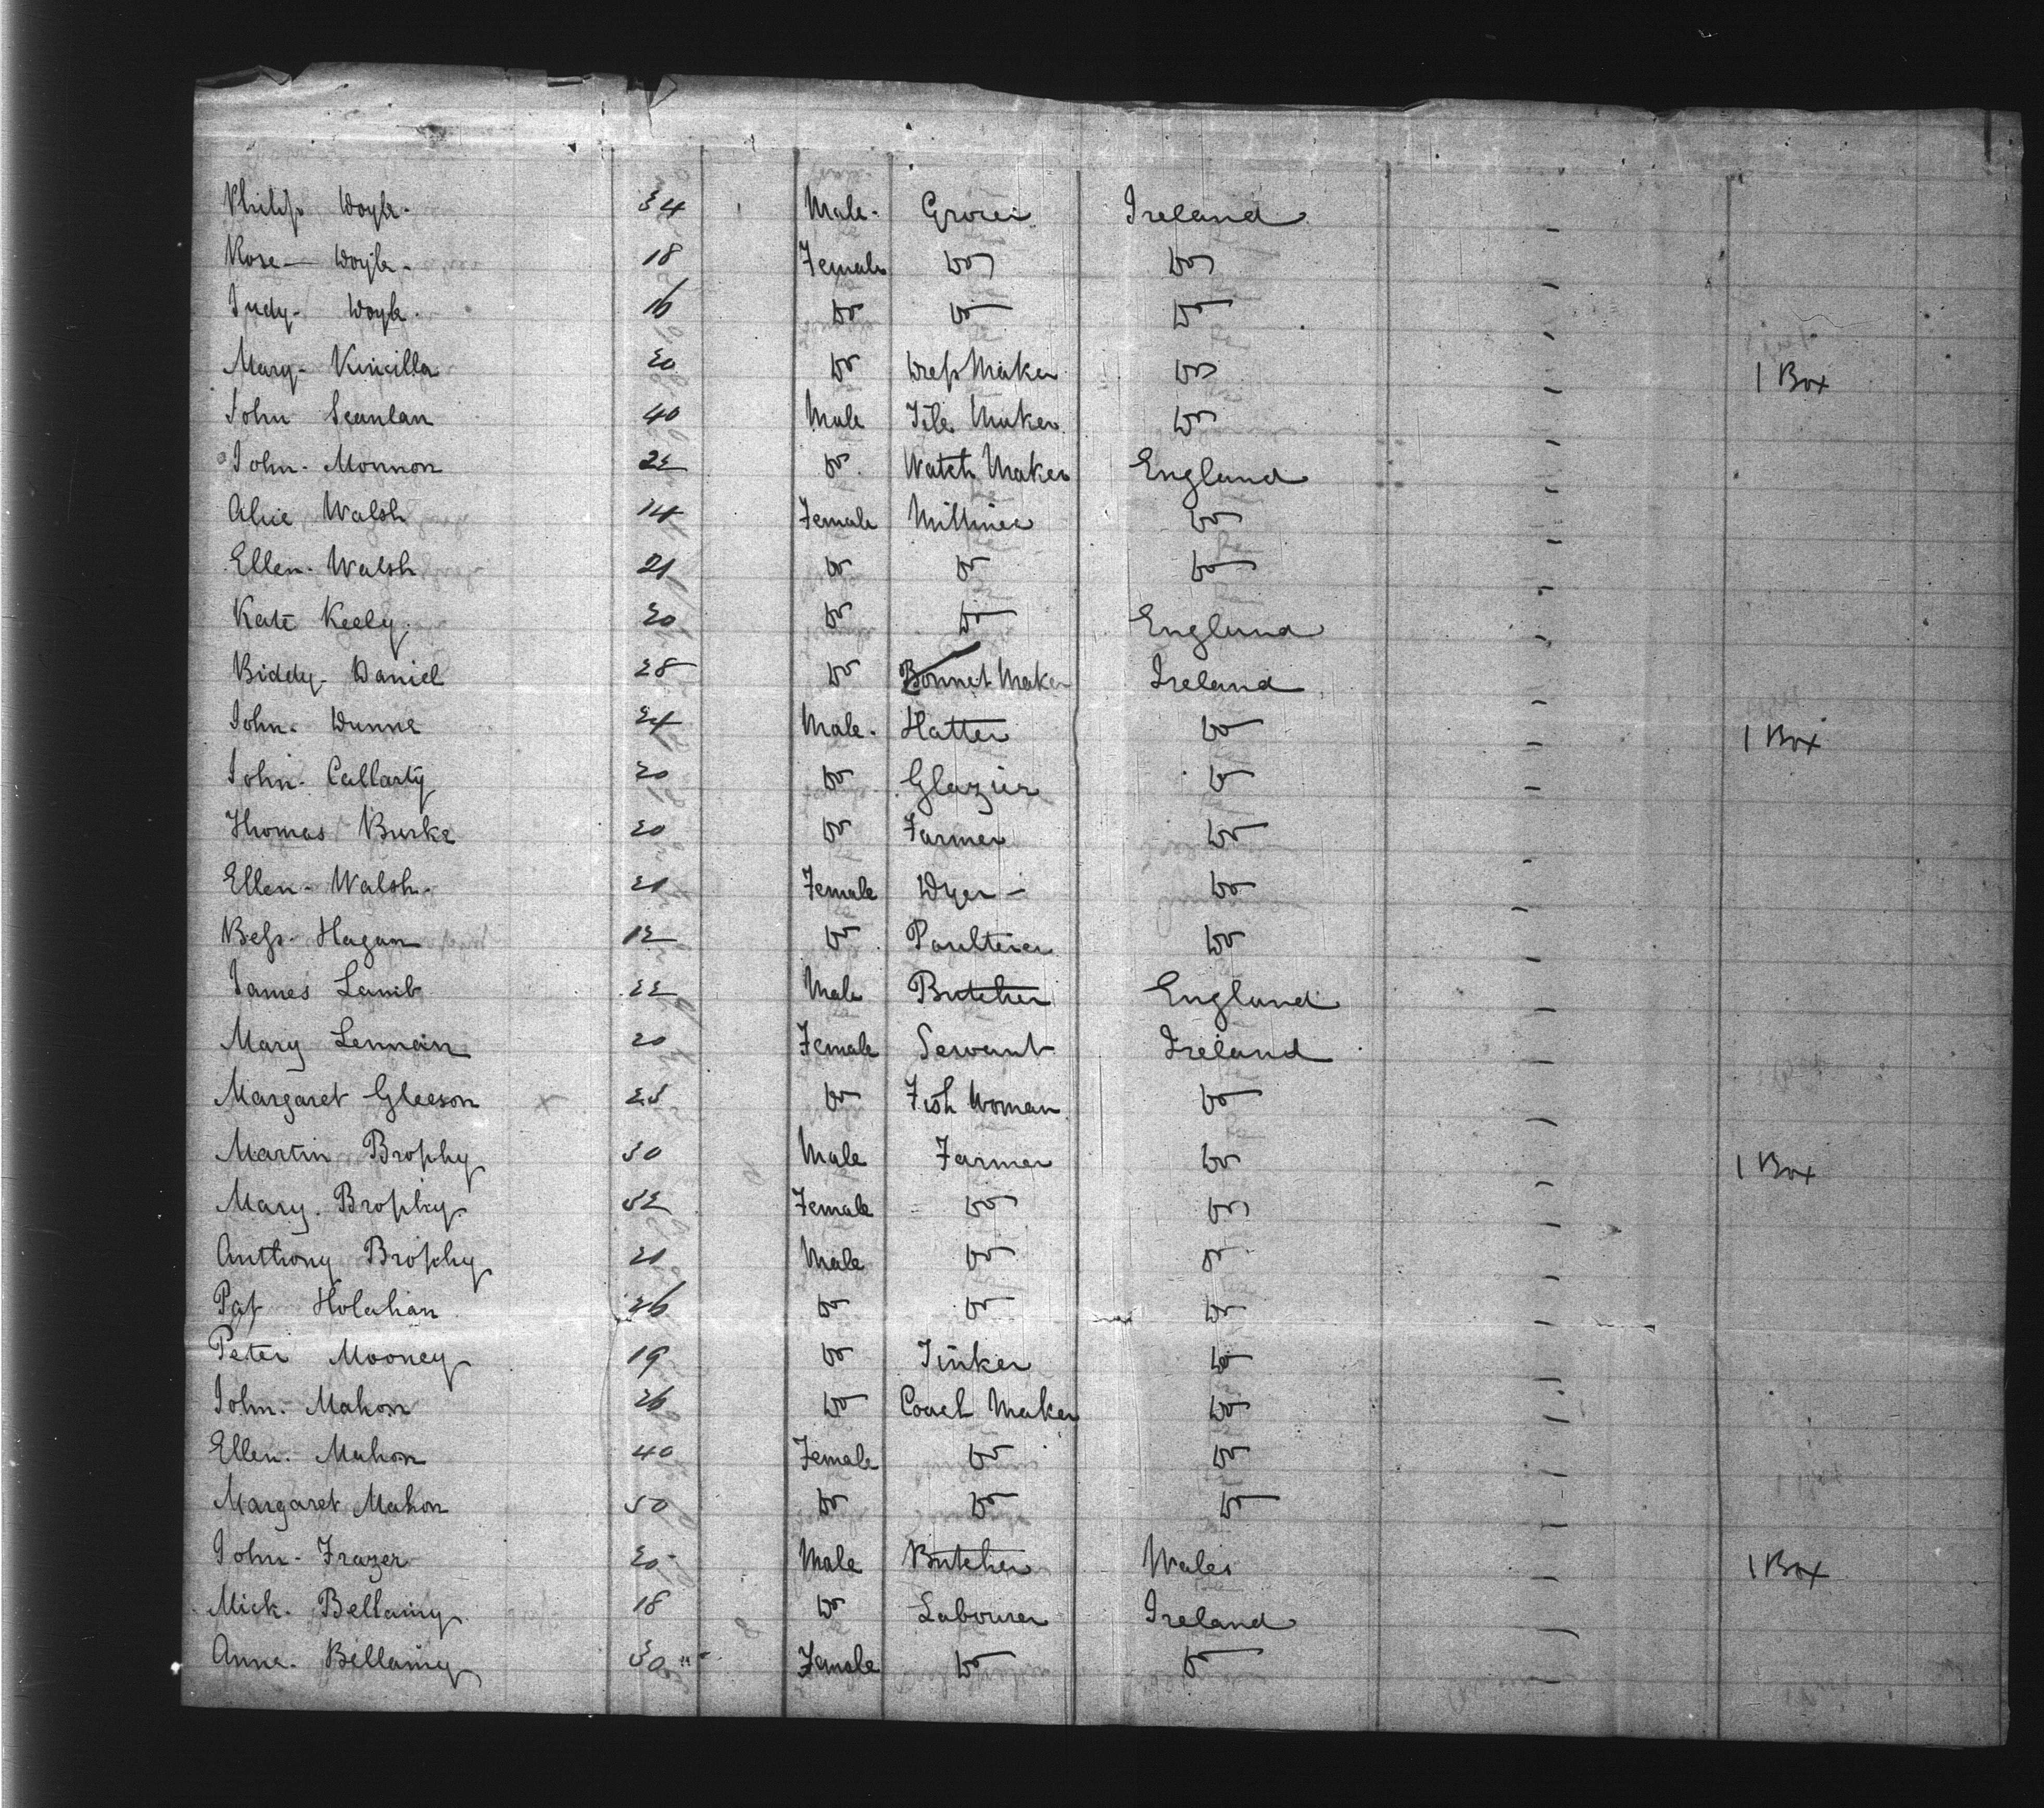 Philip Doyle 34 Male Grocer Ireland
Rose Doyle 18 Female Do Do
Judy Doyle 16 Do Do Do
Mary Kincilla 20 Do Dress Maker Do 1 Box
John Scanlan 40 Male Tile Maker Do
John Monnon 22 Do Watch Maker England
Alice Walsh 14 Female Milliner Do
Ellen Walsh 21 Do Do Do
Kate Keely 20 Do Do England
Biddy Daniel 28 Do Bonnet Maker Ireland
John Dunne 24 Male Hatter Do 1 Box
John Callarty 20 Do Glazier Do
Thomas Burke 20 Do Farmer Do
Ellen Walsh 21 Female Dyer Do
Bess Hagan 12 Do Paulterer Do
James Lamb 22 Male Butcher England
Mary Lennain 20 Female Servant Ireland
Margaret Gleeson Do Fish Woman Do
Martin Brophy 50 Male Farmer Do 1 Box
Mary Brophy 52 Female Do Do
Anthony Brophy 21 Male Do Do
Pat Holahan 26 Do Do Do
Peter Mooney 19 Do Tinker Do
John Mahon 26 Do Coach Maker Do
Ellen Mahon 40 Female Do Do
Margaret Mahon 50 Do Do Do
John Frazer 20 Male Butcher Wales 1 Box
Mick Bellamy 18 Do Labourer Ireland
Anne Bellamy 30 Female Do Do